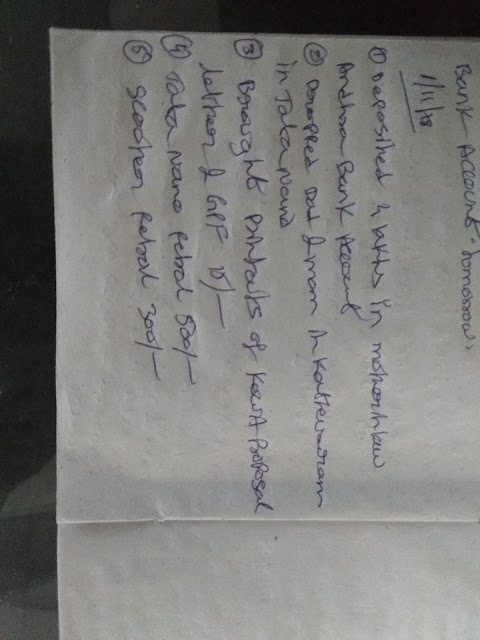 Bank Account tomorrow.
1/11/18
① Deposited 4 lakhs in mother in law
Andhra Bank Account
② Dropped Dad & mom in Kateevaram
in Tata Nano
③ Brought Printouts of
letter & GPF 10/-
④ Tata Nano petrol 500/-
⑤ Scooter petrol 300/-